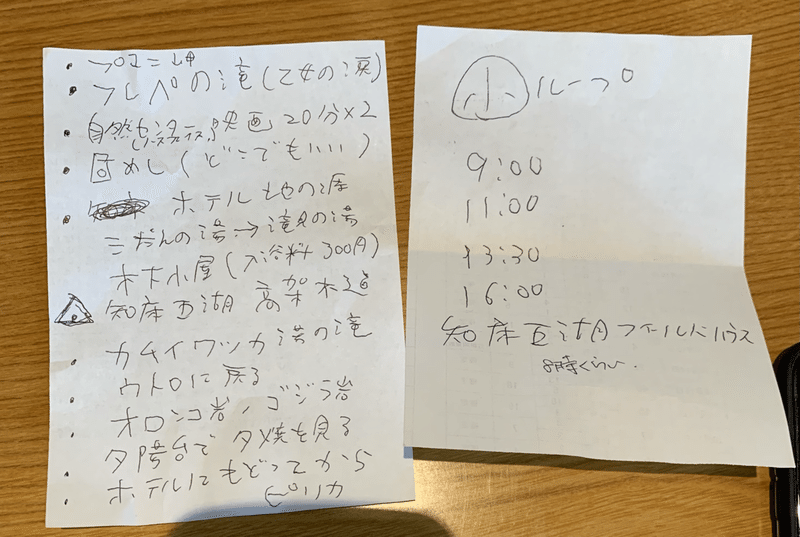 フレペの滝(乙女の涙)
自然センター 映画 20分×2
昼めし(どこでもいい)
ホテル 地の涯
三だんの湯→滝見の湯
木下小屋(入浴料300円)
知床五湖 高架木道
カムイワッカ湯の滝
ウトロに戻る
オロンコ岩、ゴジラ岩
夕陽台で夕焼を見る
ホテルにもどってから
ピリカ
小ループ
9:00
11:00
13:30
16:00
知床五湖フィールドハウス
8時くらい.